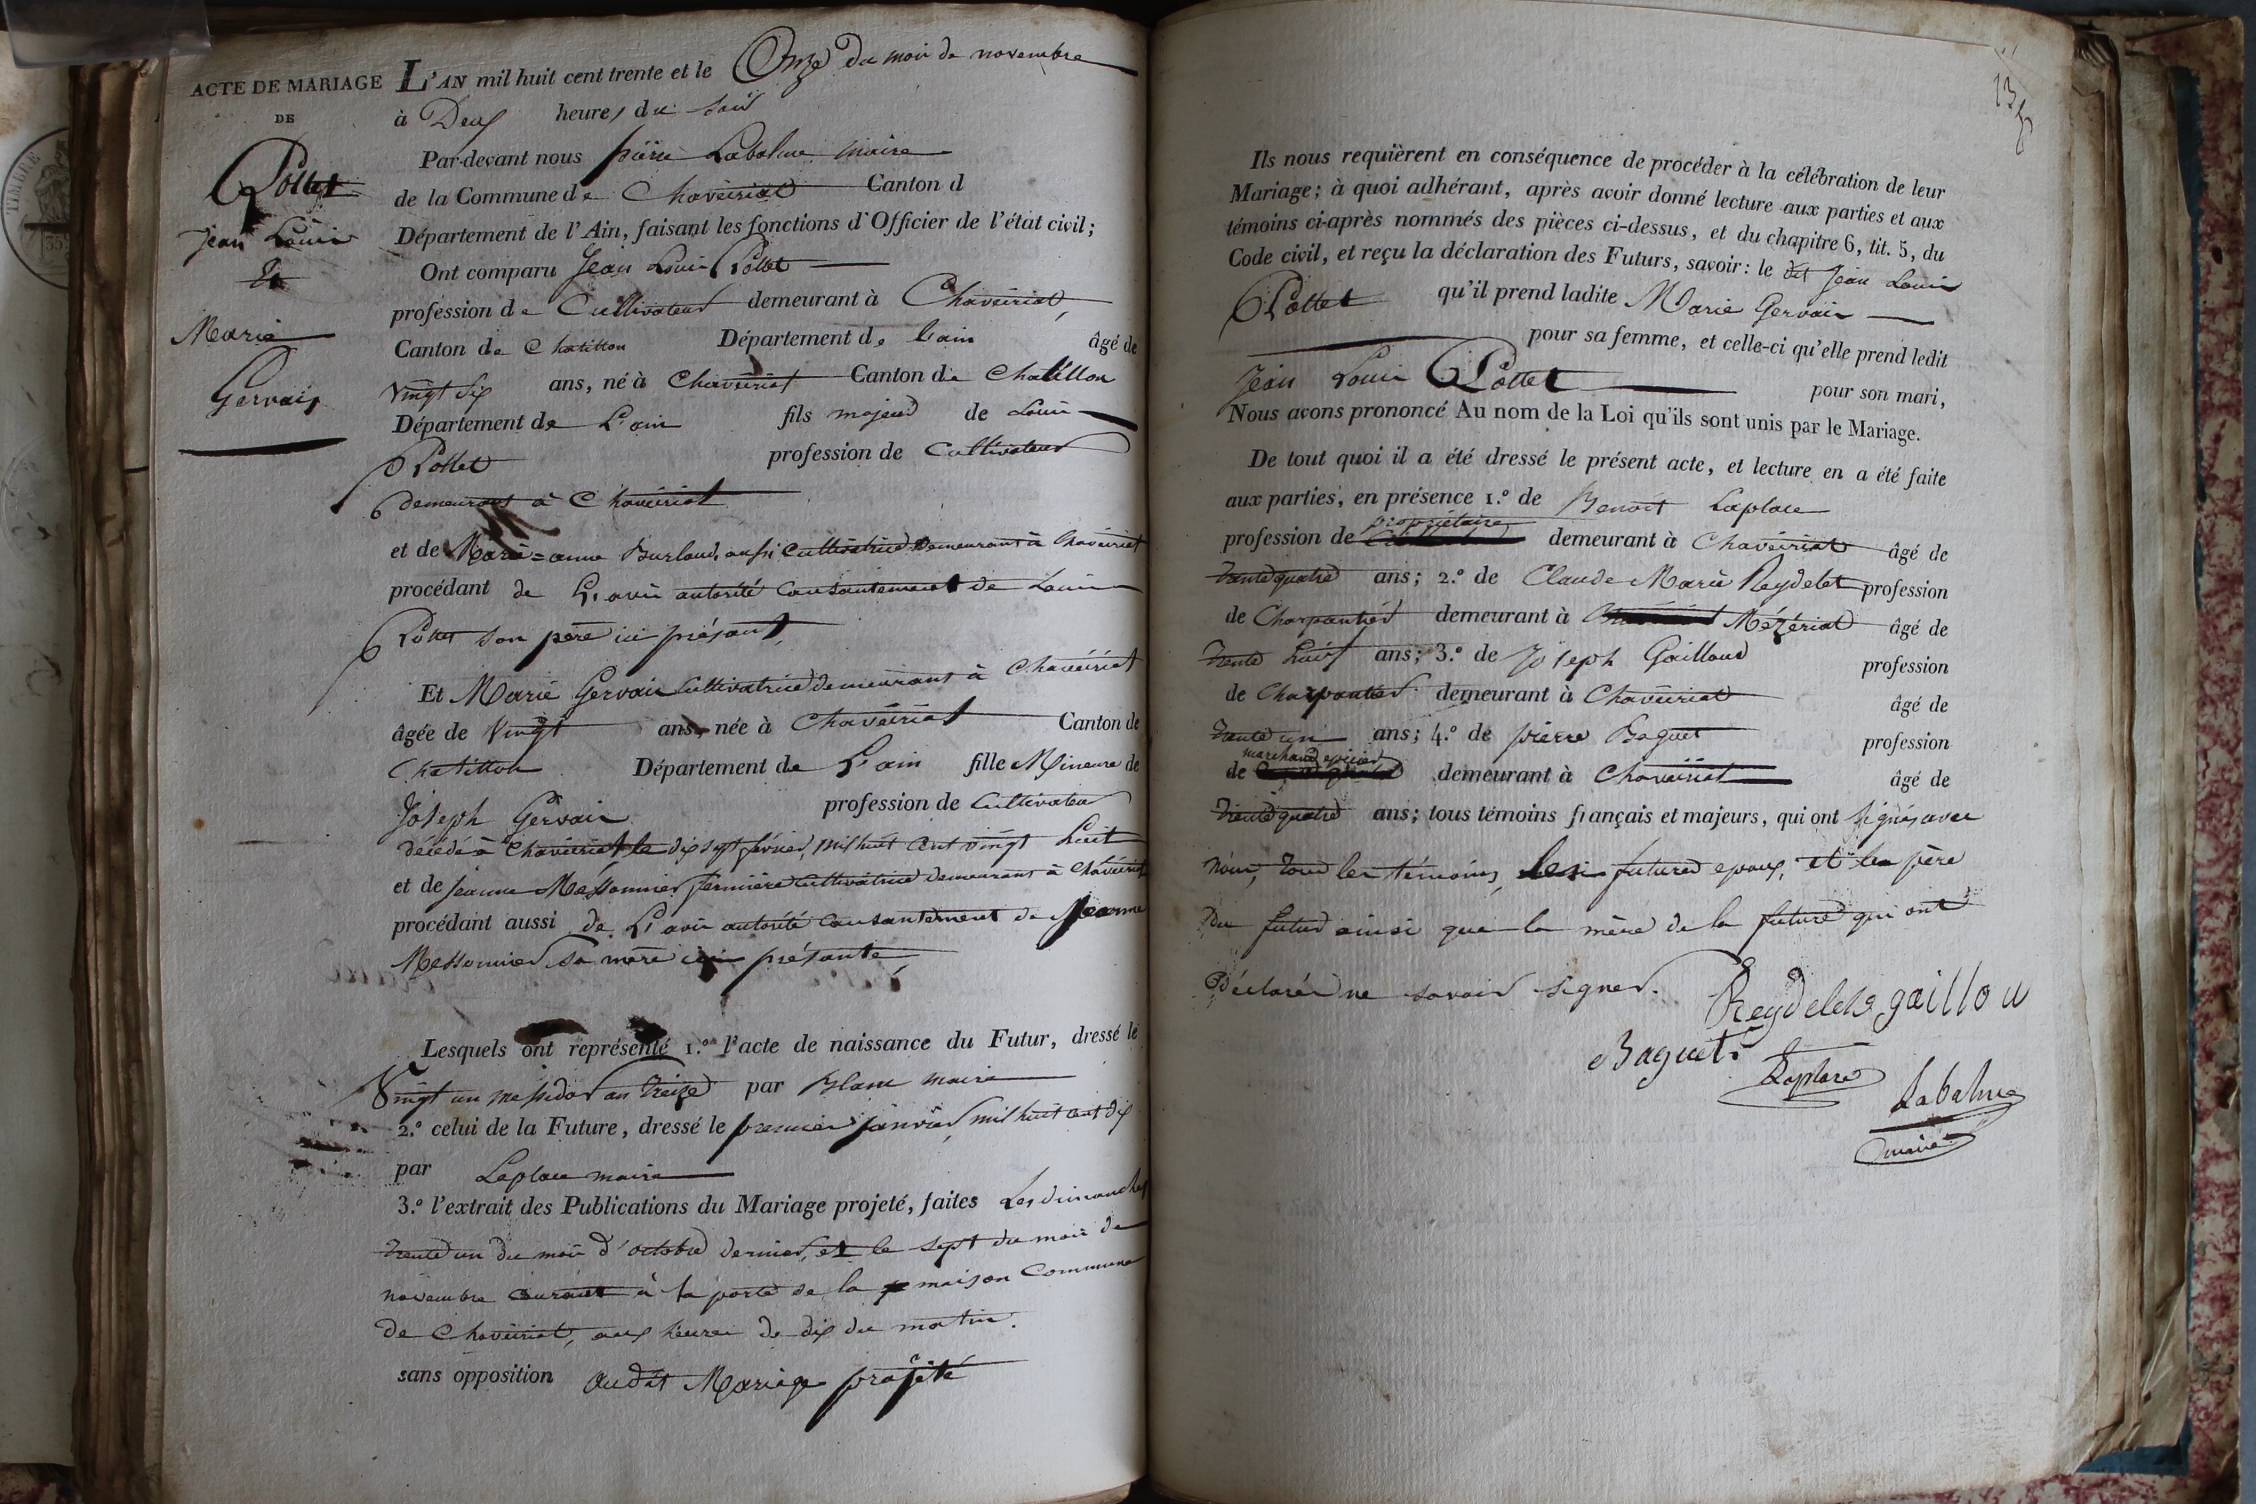 ACTE DE MARIAGE
DE
Pottet
Jean Louis
Et
Marie
Gervais
L'AN mil huit cent trente et le Onze du mois de novembre
à Deux heures du soir
Par-devant nous pierre Labalme maire
de la Commune de Chaveiriat Canton d
Département de l'Ain, faisant les fonctions d'Officier de l'état civil;
Ont comparu Jean Louis Pottet
profession de Cultivateur demeurant à Chaveiriat,
Canton de Chatillon Département de Lain âgé de
vingt six ans, né à Chaveiriat Canton de Chatillon
Département de L'ain fils majeur de Louis
Pottet profession de Cultivateur
demeurant à Chaveiriat
et de Marie=anne Burlaud, aussi Cultivatrice demeurant à Chaveiriat
procédant de L'avis autorité Consantement de Louis
Pottet son père ici présant,
Et Marie Gervais Cultivatrice demeurant à Chaveiriat
âgée de Vingt ans, née à Chaveiriat Canton de
Chatillon Département de L'ain fille Mineure de
Joseph Gervais profession de Cultivateur
décédé à Chaveiriat le dix sept février, mil huit cent vingt huit
et de Jeanne Messonnier fermière Cultivatrice demeurant à Chaveiriat
procédant aussi de L'avis autorité Consantement de Jeanne
Messonnier sa mère ici présante,
Lesquels ont représenté 1.º l'acte de naissance du Futur, dressé le
Vingt un messidor an treize par Blanc maire
2.º celui de la Future, dressé le premier janvier mil huit cent dix
par Laplace maire
3.º l'extrait des Publications du Mariage projeté, faites Les dimanches
trente un du mois d'octobre dernier, et le sept du mois de
novembre courant à la porte de la maison Commune
de Chaveiriat, aux heures de dix du matin.
sans opposition audit Mariage projeté
Ils nous requièrent en conséquence de procéder à la célébration de leur
Mariage; à quoi adhérant, après avoir donné lecture aux parties et aux
témoins ci-après nommés des pièces ci-dessus, et du chapitre 6, tit. 5, du
Code civil, et reçu la déclaration des Futurs, savoir: le dit Jean Louis
Pottet qu'il prend ladite Marie Gervais
pour sa femme, et celle-ci qu'elle prend ledit
Jean Louis Pottet pour son mari,
Nous avons prononcé Au nom de la Loi qu'ils sont unis par le Mariage.
De tout quoi il a été dressé le présent acte, et lecture en a été faite
aux parties, en présence 1.º de Benoit Laplace
propriétaire
profession de demeurant à Chaveiriat âgé de
trente quatre ans; 2.º de Claude Marie Reydelet profession
de Charpentier demeurant à Mézériat âgé de
trente huit ans; 3.º de Joseph Gailloud profession
de Charpantier demeurant à Chaveiriat âgé de
trente un ans; 4.º de pierre Baguet profession
marchand epicier
de demeurant à Chaveiriat âgé de
trente quatre ans; tous témoins français et majeurs, qui ont signés avec
nous, tous les témoins, les futures epoux, et le père
du futur ainsi que la mère de la future qui ont
déclarés ne savoir signer.
Reydelet gaillou
Baguet
Laplace
Labalme
maire